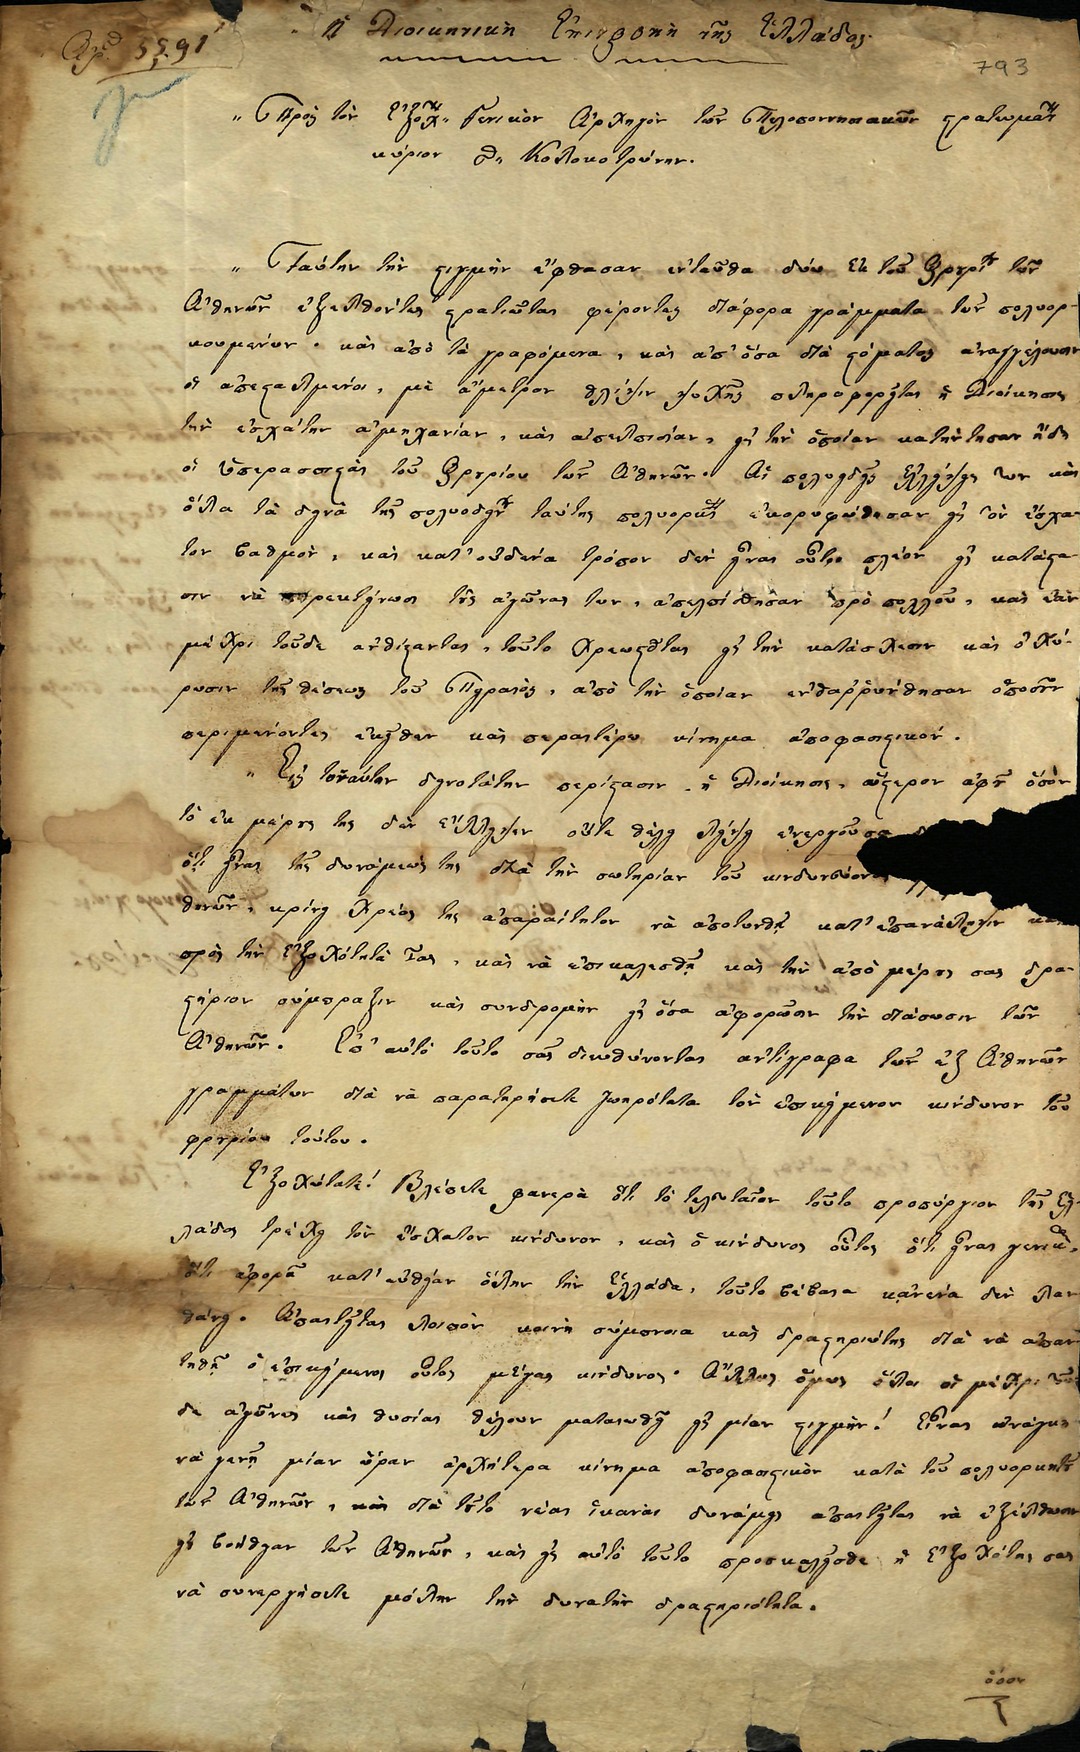 Ἀρ. 5591
Ἡ Διοικητικὴ Ἐπιτροπὴ τῆς Ἑλλάδος.
793
„ Πρὸς τὸν Ἐξοχ. Γενικὸν Ἀρχηγὸν τῶν Πελοποννησιακῶν στρατευμάτ
κύριον Θ. Κολοκοτρώνην.
„ Ταύτην τὴν στιγμὴν ἔφθασαν ἐνταῦθα δύο ἐκ τοῦ Φρουρί τῶν
Ἀθηνῶν ἐξελθόντες στρατιῶται φέροντες διάφορα γράμματα τῶν πολιορ-
κουμένων. καὶ ἀπὸ τὰ γραφόμενα, καὶ ἀπ' ὅσα διὰ στόματος ἀναγγέλουσιν
οἱ ἀπεσταλμένοι, μὲ ἄμετρον θλίψιν ψυχῆς πληροφορεῖται ἡ Διοίκησις
τὴν ἐσχάτην ἀμηχανίαν, καὶ ἀπελπισίαν, εἰς τὴν ὁποίαν κατήντησαν ἤδη
οἱ ὑπερασπισταὶ τοῦ Φρουρίου τῶν Ἀθηνῶν. Αἱ πολυειδεῖς ἐλλείψεις των καὶ
ὅλα τὰ δεινὰ τῆς πολυοδύν ταύτης πολιορκ ἐκορυφώθησαν εἰς τὸν ἔσχα-
τον βαθμὸν, καὶ κατ' οὐδένα τρόπον δὲν εἶναι οὗτοι πλέον εἰς κατάστα
σιν νὰ παρεκτείνωσι τοὺς ἀγῶνας των, ἀπελπίσθησαν πρὸ πολλοῦ, καὶ ἐὰν
μέχρι τοῦδε ἀνθίστανται, τοῦτο χρεωστεῖται εἰς τὴν κατάσχεσιν καὶ ὀχύ-
ρωσιν τῆς θέσεως τοῦ Πειραιῶς, ἀπὸ τὴν ὁποίαν ἐνθαῤῥύνθησαν ὁπωσοῦν
περιμένοντες ἐκεῖθεν καὶ περαιτέρω κίνημα ἀποφασιστικόν.
„ Εἰς τοιαύτην δεινοτάτην περίστασιν ἡ Διοίκησις, ὕστερον ἀφ' οὗ ὅσον
τὸ ἐκ μέρους της δὲν ἔλλειψεν οὔτε θέλει λείψει ἐνεργοῦσα
ὅ,τι εἶναι τῆς δυνάμεώς της διὰ τὴν σωτηρίαν τοῦ κινδυνεύοντος
θηνῶν, κρίνει χρέος της ἀπαραίτητον νὰ ἀποτανθῇ κατ' ἐπανάληψιν καὶ
πρὸς τὴν ἐξοχότητά σας, καὶ νὰ ἐπικαλεσθῇ καὶ τὴν ἀπὸ μέρους σας δρα-
στήριον σύμπραξιν καὶ συνδρομὴν εἰς ὅσα ἀφορῶσιν τὴν διάσωσιν τῶν
Ἀθηνῶν. Ἐπ' αὐτὸ τοῦτο σᾶς διευθύνονται ἀντίγραφα τῶν ἐξ Ἀθηνῶν
γραμμάτων διὰ νὰ παρατηρήσετε ζωηρότατα τὸν ἐπικείμενον κίνδυνον τοῦ
φρουρίου τούτου.
Ἐξοχώτατε! Βλέπετε φανερὰ ὅτι τὸ τελευταῖον τοῦτο προπύργιον τῆς Ἑλ-
λάδος τρέχει τὸν ἔσχατον κίνδυνον, καὶ ὁ κίνδυνος οὗτος ὅτι εἶναι γενικὸς,
ὅτι ἀφορᾷ κατ' εὐθεῖαν ὅλην τὴν Ἑλλάδα, τοῦτο βέβαια κανένα δὲν λαν
θάνει. Ἀπαιτεῖται λοιπὸν κοινὴ σύμπνοια καὶ δραστηριότης διὰ νὰ ἀπαν
τηθῇ ὁ ἐπικείμενος οὗτος μέγας κίνδυνος. Ἄλλως ὅμως ὅλοι οἱ μέχρι τοῦ-
δε ἀγῶνες καὶ θυσίαι θέλουν ματαιωθῆ εἰς μίαν στιγμήν! Εἶναι ἀνάγκη
νὰ γενῇ μίαν ὥραν ἀρχήτερα κίνημα ἀποφασιστικὸν κατὰ τοῦ πολιορκητοῦ
τῶν Ἀθηνῶν, καὶ διὰ τοῦτο νέαι ἱκαναὶ δυνάμεις ἀπαιτεῖται νὰ ἐξέλθωσιν
εἰς βοήθειαν τῶν Ἀθηνῶν, καὶ εἰς αὐτὸ τοῦτο προσκαλεῖσθε ἡ Ἐξοχότης σας
νὰ συνεργήσετε μὲ ὅλην τὴν δυνατὴν δραστηριότητα.
ὅσον